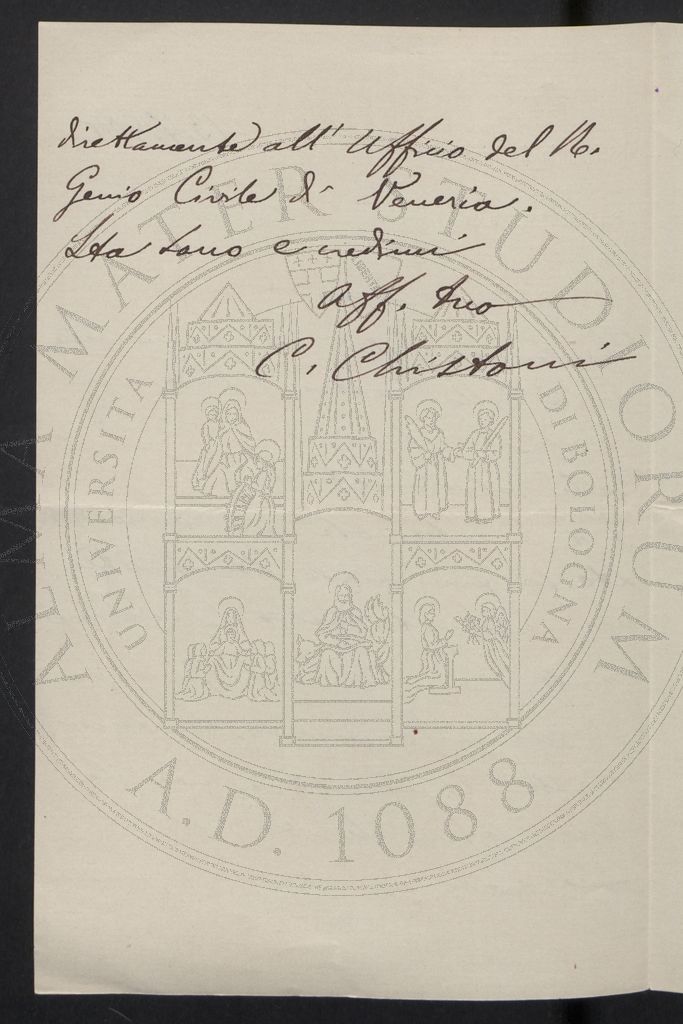 direttamente all' Ufficio del R.
Genio Civile di Venezia.
Sta sano e credimi
aff. tuo
C. Chistoni
ALMA MATER STUDIORUM
UNIVERSITA DI BOLOGNA
A.D. 1088